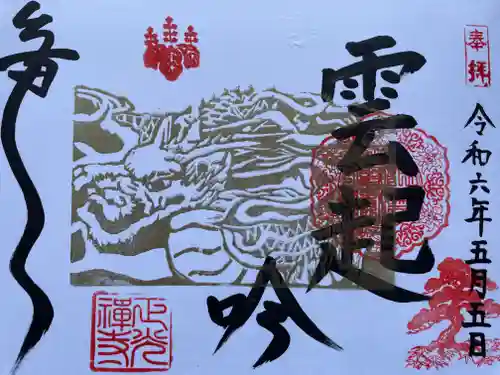 奉拝
令和六年五月五日
雲起
吟
正光
禪寺